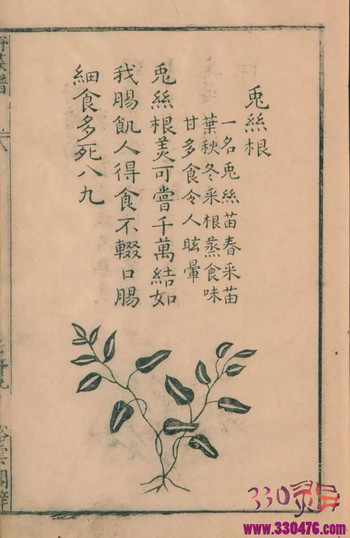 兎絲根
一名兎絲苗春采苗
葉秋冬采根蒸食味
甘多食令人眩暈
兎絲根美可嘗千萬結如
我腸飢人得食不輟口腸
細食多死八九
330
www.330476.com